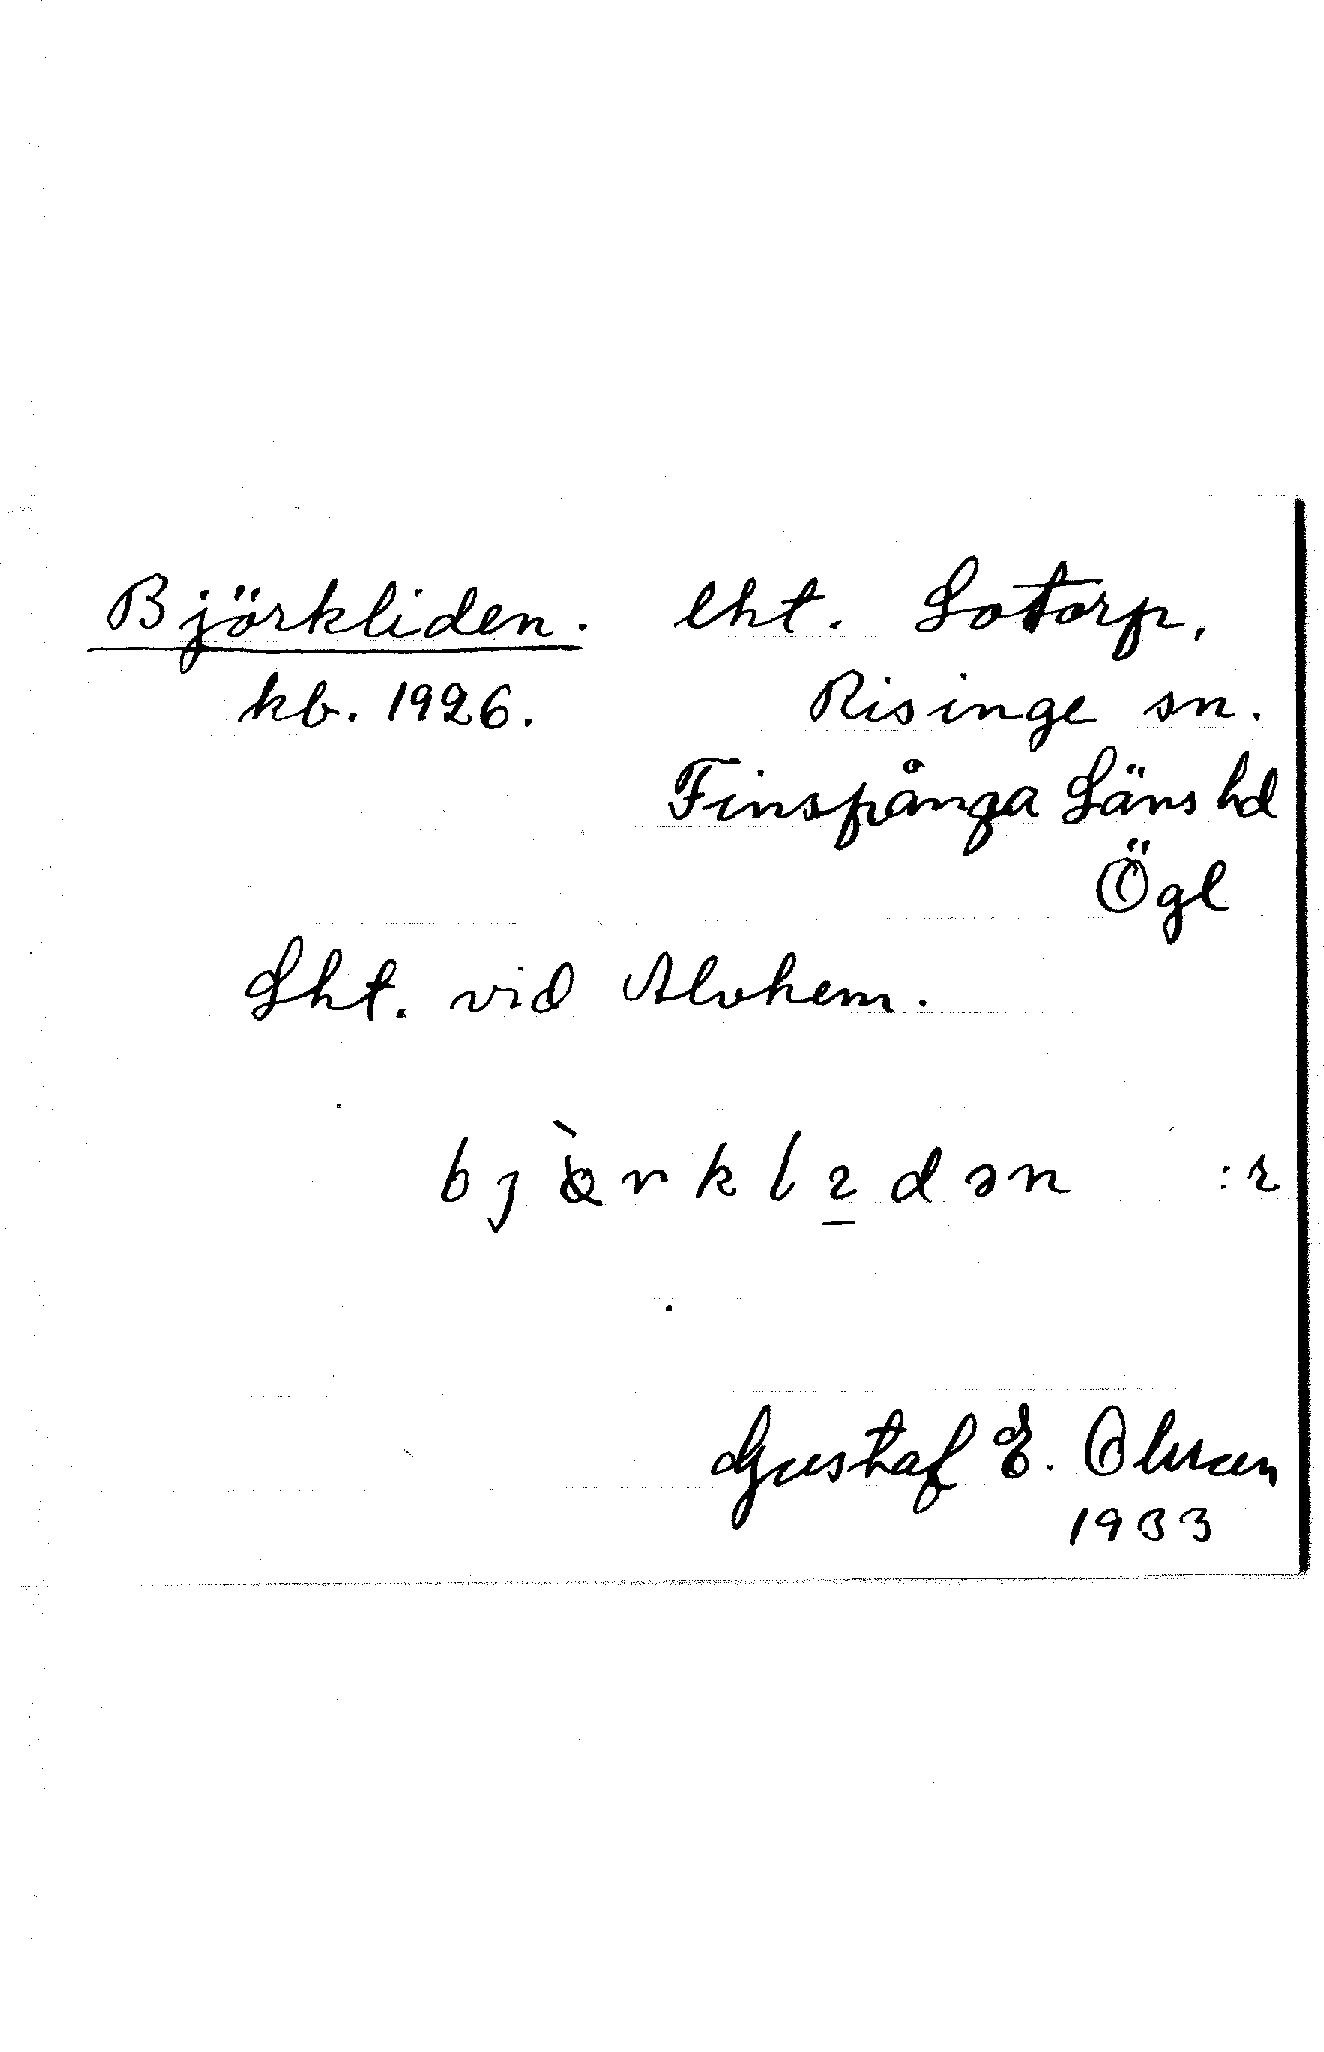 Björkliden. lht. Lotorp,
kb. 1926. Risinge sn.
Finspånga Läns hd
Ögl
Lht. vid Alvhem.
Gustaf E. Olsson
1933